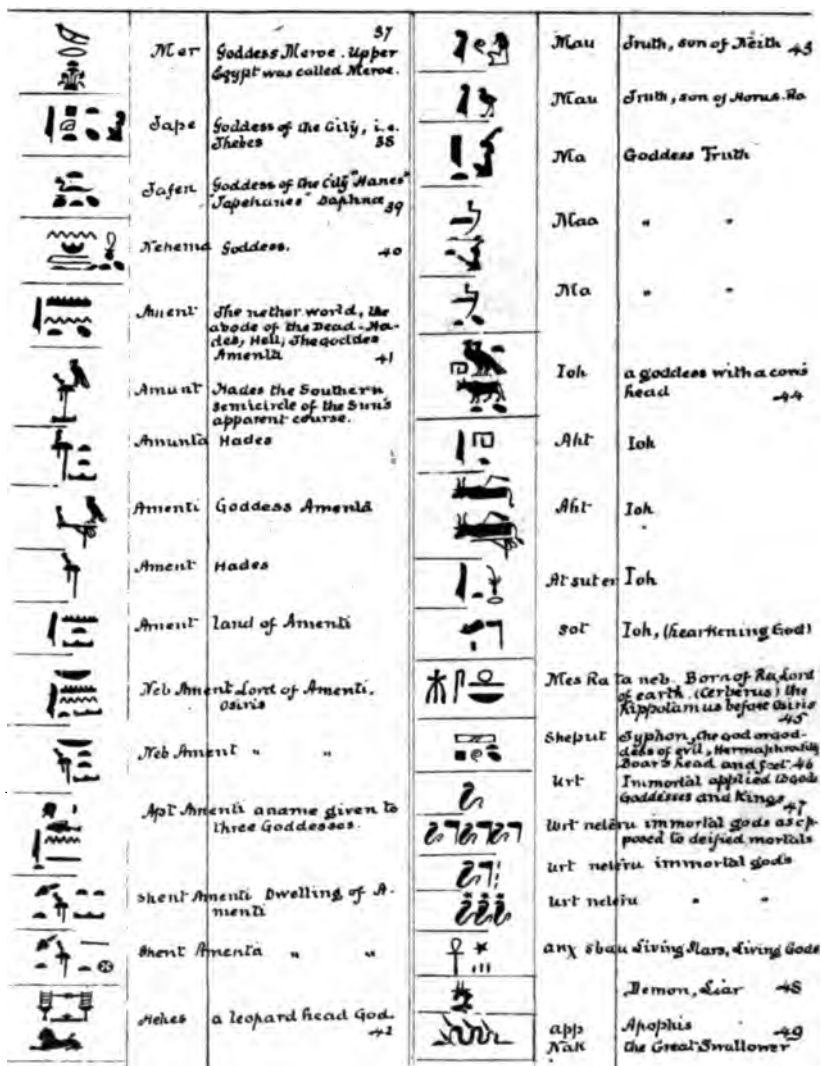 37
Mer Goddess Meroe. Upper
Egypt was called Meroe.
Tape Goddess of the City, i.e.
Thebes 38
Tafen Goddess of the City "Hanes"
"Tapehanes" Daphnae 39
Nehema Goddess. 40
Ament The nether world, the
abode of the Dead-Ha-
des, Hell; The goddes
Amenta 41
Amunt Hades the Southern
semicircle of the Sun's
apparent course.
Amunta Hades
Amenti Goddess Amenta
Ament Hades
Ament land of Amenti
Neb Ament Lord of Amenti.
Osiris
Neb Ament " "
Apt Amenti a name given to
three Goddesses.
shent Amenti Dwelling of A-
menti
Shent Amenta " "
Hekes a leopard head God.
42
Mau Truth, son of Neith 43
Mau Truth, son of Horus-Ra
Ma Goddess Truth
Maa " "
Ma " "
Ioh a goddess with a cow's
head 44
Aht Ioh
Aht Ioh
At suter Ioh
Sot Ioh, (hearkening God)
Mes Ra ta neb. Born of Ra, Lord
of earth. (Cerberus) the
Hippotamus before Osiris
45
Sheput Typhon, the god or god-
dess of evil, Hermaphrodite
Boar's head and feet. 46
Urt Immortal applied to gods
Goddesses and Kings
47
Urt neteru immortal gods as op-
posed to deified mortals
urt neteru immortal gods
Urt neteru " "
anx sbau Living Stars, Living Gods
Demon, Liar 48
app Apophis 49
Nak the Great Swallower